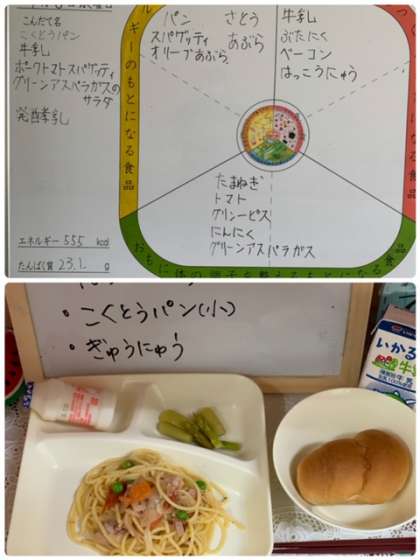 こんだて名
こくとうパン
牛乳
ポークトマトスパゲッティ
グリーンアスパラガスの
サラダ
発酵乳
エネルギー 555 kcal
たんぱく質 23.1 g
ギーのもとになる食品
パン さとう
スパゲッティ あぶら
オリーブあぶら
牛乳
ぶたにく
ベーコン
はっこうにゅう
つ
になる食品
たまねぎ
トマト
グリーンピース
にんにく
グリーンアスパラガス
おもに体の調子を整えるもとになる食品
・こくとうパン(小)
・ぎゅうにゅう
いかる
牛乳